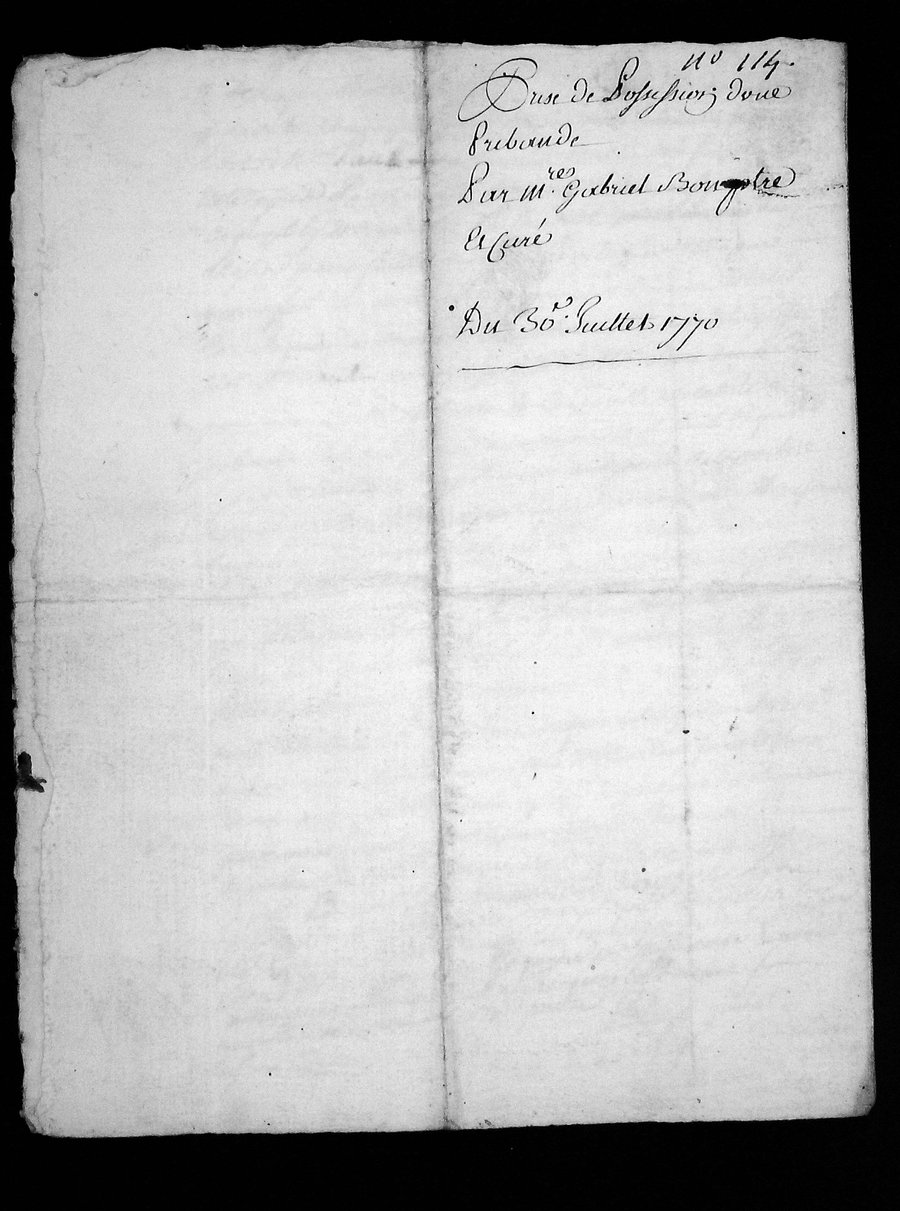 no 114.
Prise de Possession; doue
Prebande
Par m.res Gabriel
Et Curé
Du 30e. Juillet 1770